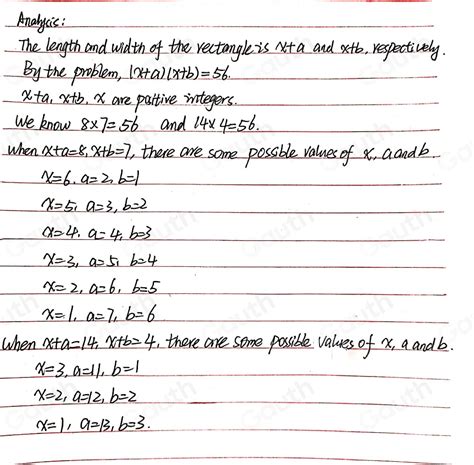 Analysis:
The length and width of the rectangle is x+a and x+b, respectively.
By the problem, (x+a)(x+b)=56.
x+a, x+b, x are positive integers.
We know 8×7=56 and 14×4=56.
When x+a=8, x+b=7, there are some possible values of x, a and b.
x=6, a=2, b=1
x=5, a=3, b=2
x=4, a=4, b=3
x=3, a=5, b=4
x=2, a=6, b=5
x=1, a=7, b=6
When x+a=14, x+b=4, there are some possible values of x, a and b.
x=3, a=11, b=1
x=2, a=12, b=2
x=1, a=13, b=3.